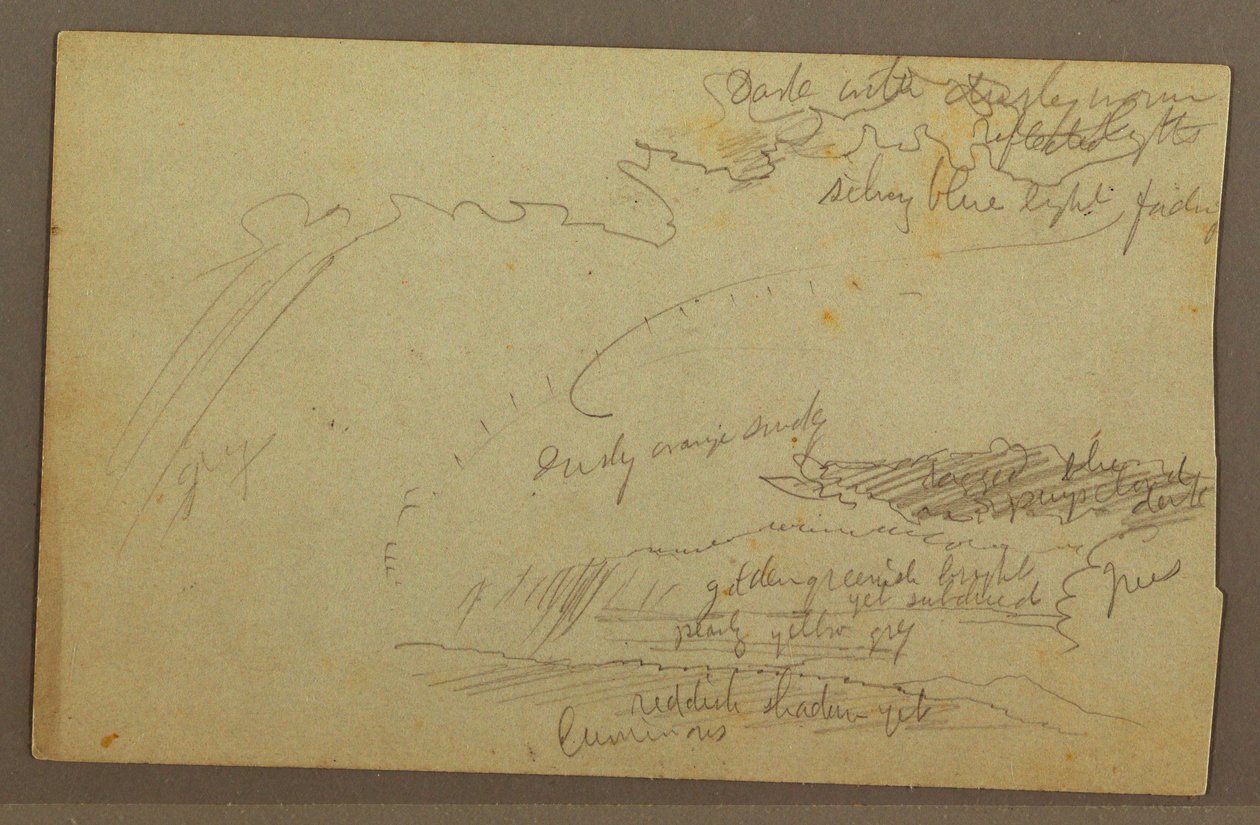 Dark with dusky warm
reflected lights
silvery blue light fading
grey
Dusky orange smoky
ragged blue
purp cloud
dark
grey
golden greenish bright
yet subdued
pearly yellow grey
reddish shadow yet
luminous